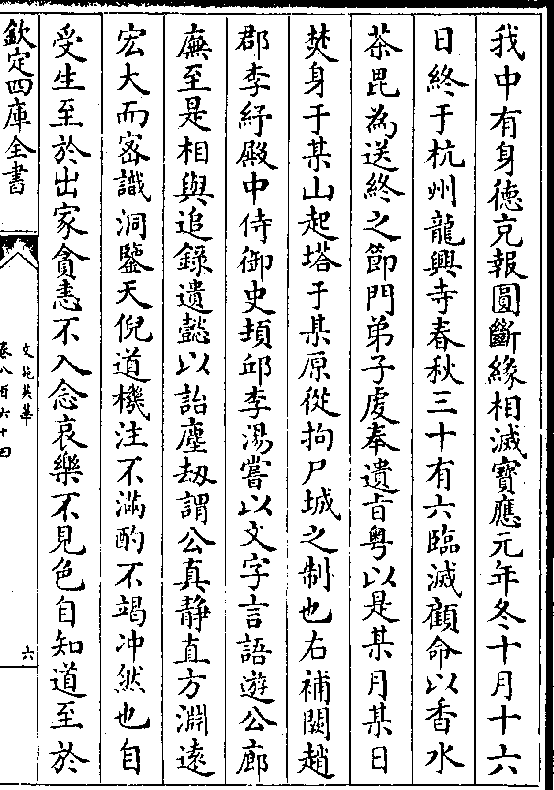 我中有身德充報圓斷緣相滅寶應元年冬十月十六
日終于杭州龍興寺春秋三十有六臨滅顧命以香水
荼毘為送終之節門弟子虔奉遺旨粤以是某月某日
焚身于某山起塔于某原從拘尸城之制也右補闕趙
郡李紓殿中侍御史頓邱李湯嘗以文字言語遊公廊
廡至是相與追錄遺懿以詒塵劫謂公真静直方淵遠
宏大而密識洞鑒天倪道機注不滿酌不竭冲然也自
受生至於出家貪恚不入念哀樂不見色自知道至於
欽定四庫全書
文苑英華
卷八百六十四
六